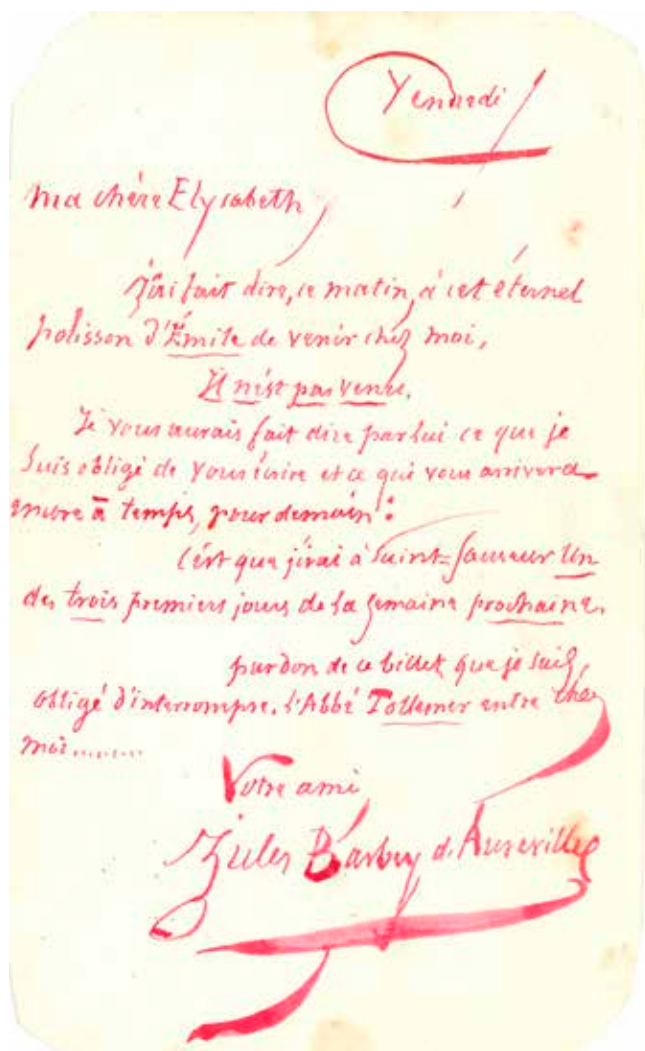 Vendredi
ma chère Elysabeth,
J'ai fait dire, ce matin, à cet éternel
polisson d'Émile de venir chez moi,
Il n'est pas venu.
Je vous aurais fait dire par lui ce que je
suis obligé de vous écrire et ce qui vous arrivera
encore à temps, pour demain :
C'est que j'irai à Saint-Sauveur un
des trois premiers jours de la semaine prochaine.
pardon de ce billet que je suis,
obligé d'interrompre. L'Abbé Tollemer entre chez
moi........
Votre ami
Jules Barbey d'Aurevilly